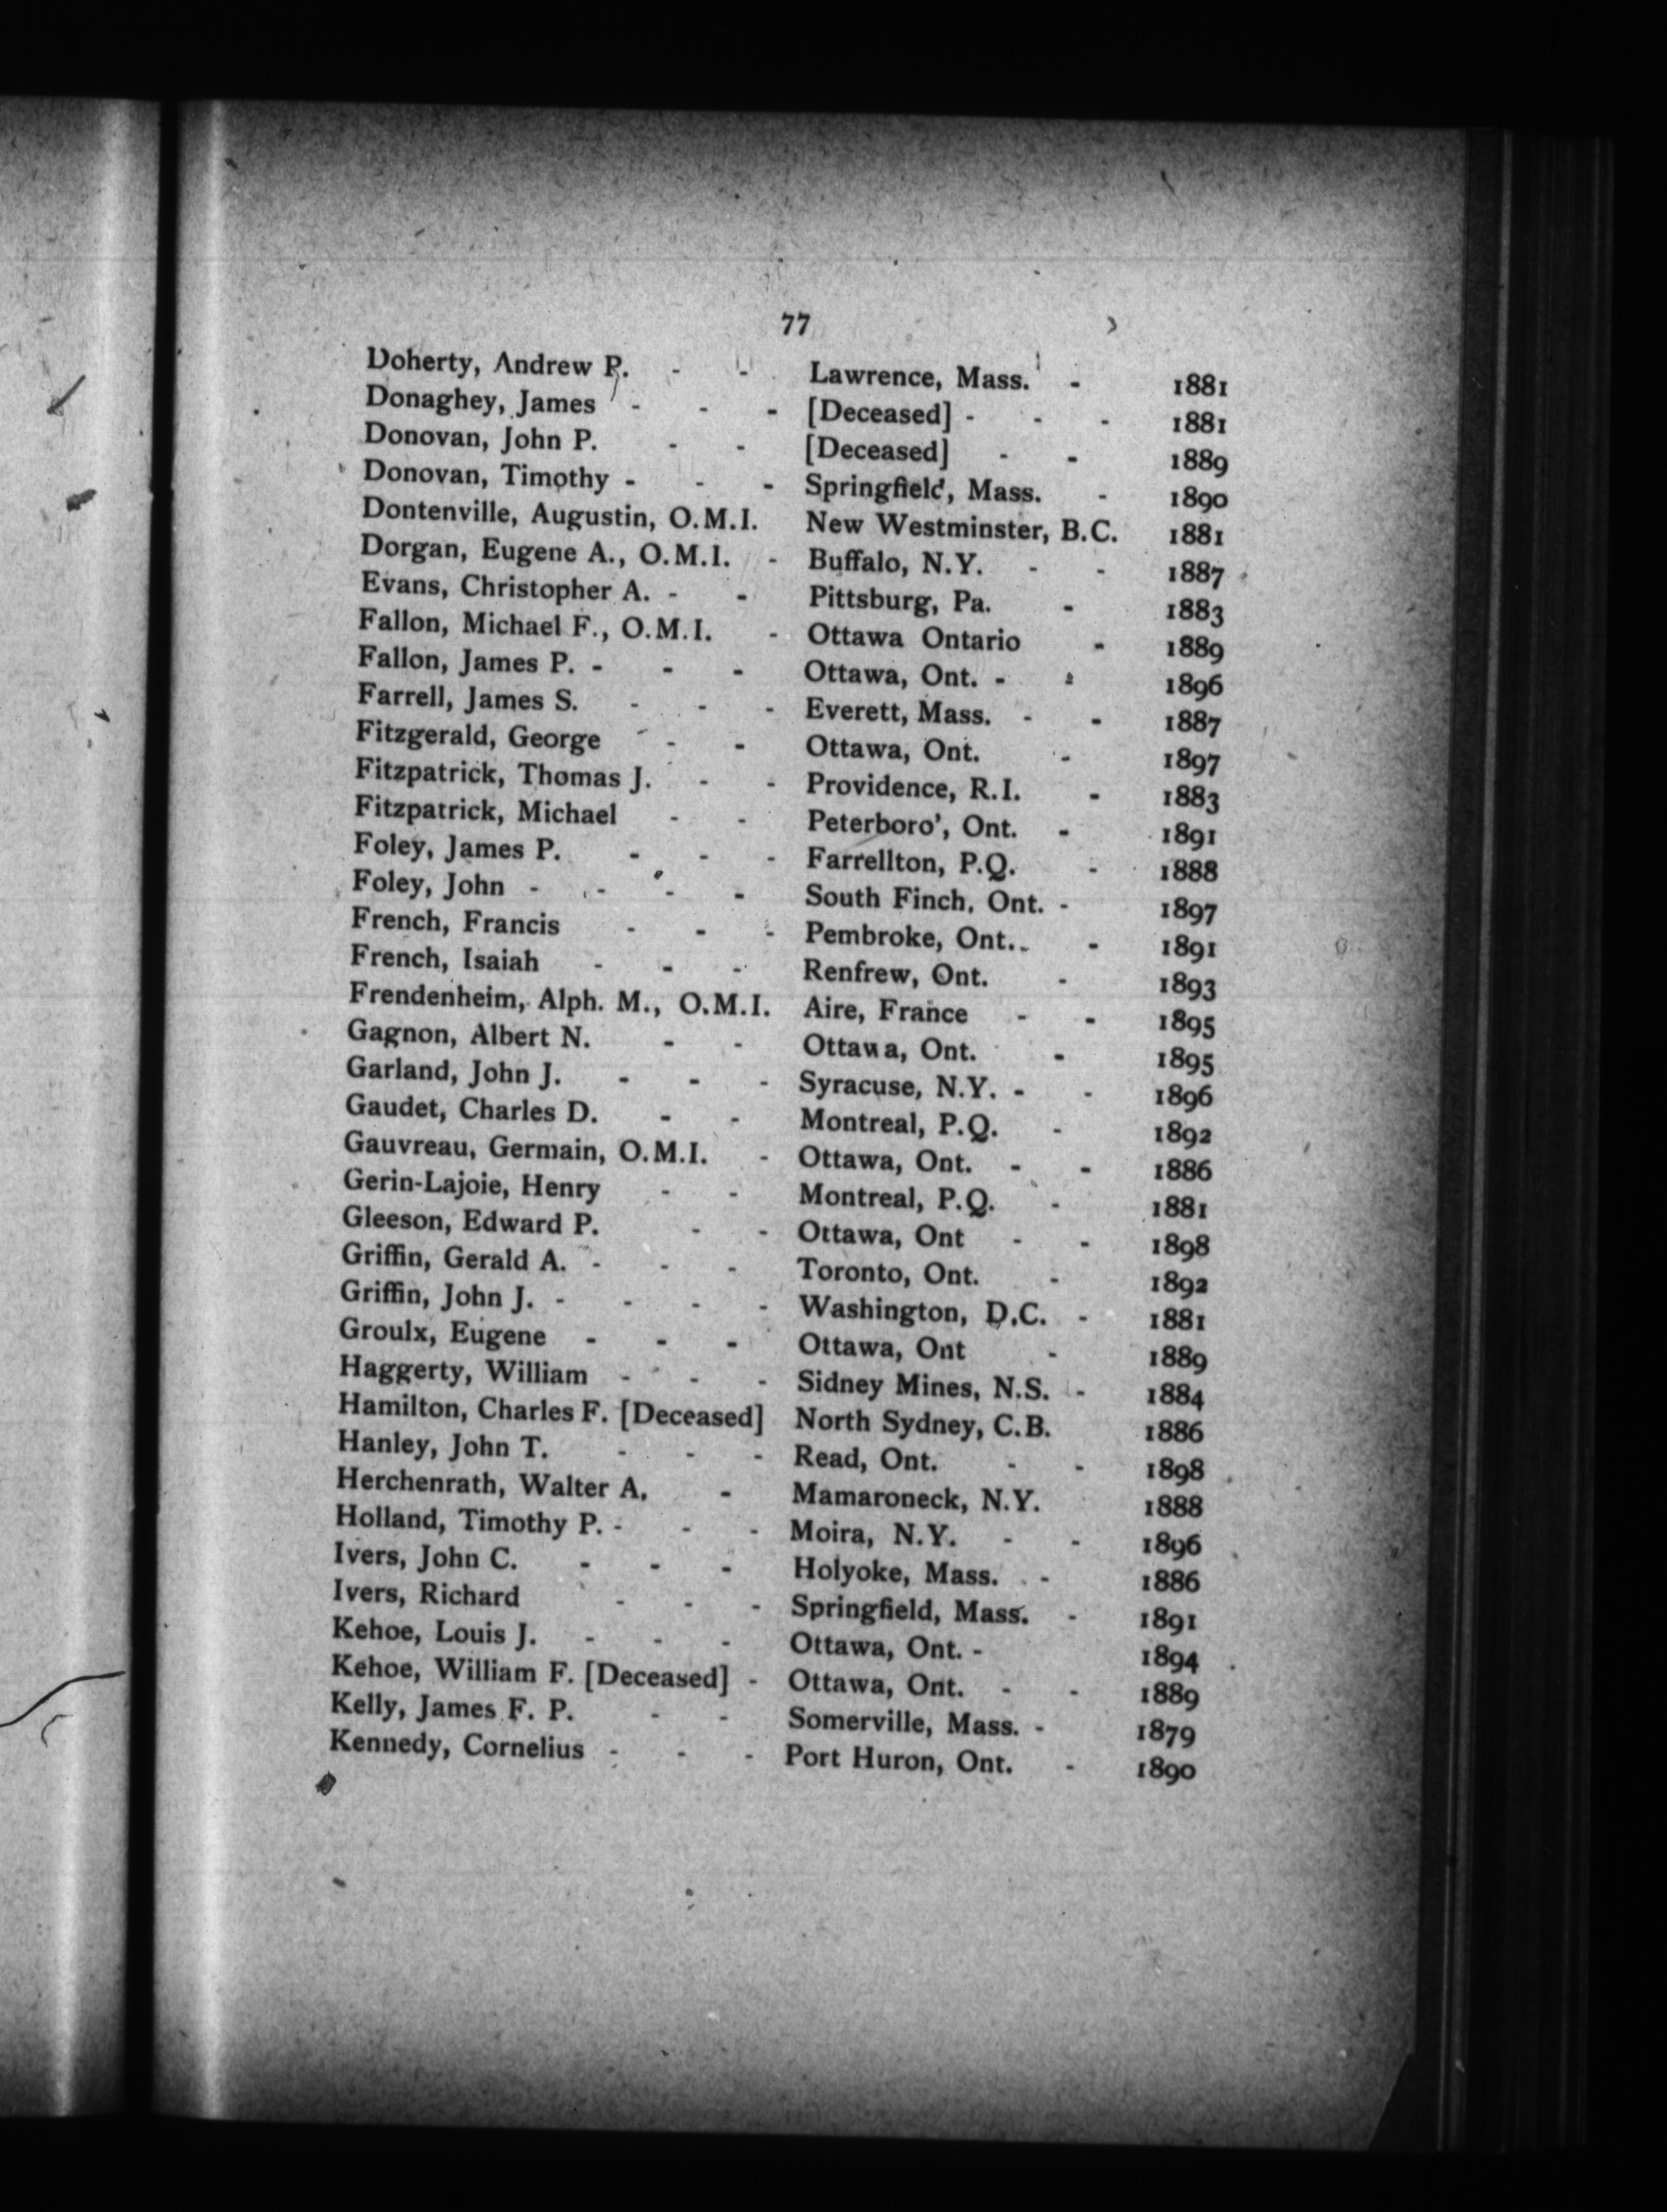 77
Doherty, Andrew P. - - Lawrence, Mass. - 1881
Donaghey, James - - - [Deceased] - - - 1881
Donovan, John P. - - [Deceased] - - 1889
Donovan, Timothy - - - Springfield, Mass. - 1890
Dontenville, Augustin, O.M.I. New Westminster, B.C. 1881
Dorgan, Eugene A., O.M.I. - Buffalo, N.Y. - - 1887
Evans, Christopher A. - - Pittsburg, Pa. - 1883
Fallon, Michael F., O.M.I. - Ottawa Ontario - 1889
Fallon, James P. - - - Ottawa, Ont. - - 1896
Farrell, James S. - - - Everett, Mass. - - 1887
Fitzgerald, George - - Ottawa, Ont. - 1897
Fitzpatrick, Thomas J. - - Providence, R.I. - 1883
Fitzpatrick, Michael - - Peterboro', Ont. - 1891
Foley, James P. - - - Farrellton, P.Q. - 1888
Foley, John - - - - South Finch, Ont. - 1897
French, Francis - - - Pembroke, Ont. - - 1891
French, Isaiah - - - Renfrew, Ont. - 1893
Frendenheim, Alph. M., O.M.I. Aire, France - - 1895
Gagnon, Albert N. - - Ottawa, Ont. - 1895
Garland, John J. - - - Syracuse, N.Y. - - 1896
Gaudet, Charles D. - - Montreal, P.Q. - 1892
Gauvreau, Germain, O.M.I. - Ottawa, Ont. - - 1886
Gerin-Lajoie, Henry - - Montreal, P.Q. - 1881
Gleeson, Edward P. - - Ottawa, Ont - - 1898
Griffin, Gerald A. - - - Toronto, Ont. - 1892
Griffin, John J. - - - - Washington, D.C. - 1881
Groulx, Eugene - - - Ottawa, Ont - 1889
Haggerty, William - - - Sidney Mines, N.S. - 1884
Hamilton, Charles F. [Deceased] North Sydney, C.B. 1886
Hanley, John T. - - - Read, Ont. - - 1898
Herchenrath, Walter A. - Mamaroneck, N.Y. 1888
Holland, Timothy P. - - - Moira, N.Y. - - 1896
Ivers, John C. - - - Holyoke, Mass. - 1886
Ivers, Richard - - - Springfield, Mass. - 1891
Kehoe, Louis J. - - - Ottawa, Ont. - 1894
Kehoe, William F. [Deceased] - Ottawa, Ont. - - 1889
Kelly, James F. P. - - Somerville, Mass. - 1879
Kennedy, Cornelius - - - Port Huron, Ont. - 1890